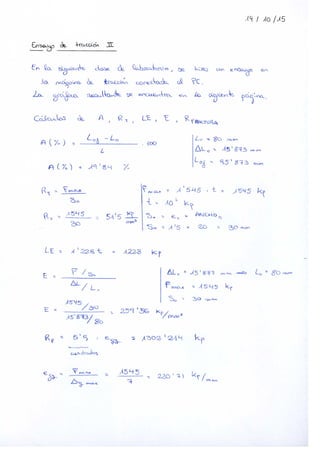 19 / 10 / 15
Ensayo de tracción II
En la siguiente clase de laboratorio, se hizo un ensayo en
la máquina de tracción conectada al PC.
La gráfica resultante se encuentra en la siguiente página.
Cálculos de A, R₁, LE, E, R
A (%) = (Lof - Lo) / L · 100
Lo = 80 mm
ΔLo = 15'873 mm
Lof = 95'873 mm
A (%) = 19'84 %
R₁ = Fmax / So
Fmax = 1'545 · t = 1545 Kp
t = 10³ Kp
R₁ = 1545 / 30 = 51'5 Kp/mm²
So = e₀ · ANCHO₀
So = 1'5 · 20 = 30 mm
LE = 1'228 t = 1228 Kp
E = (F / So) / (ΔL / Lo)
ΔLo = 15'873 mm ⇒ Lo = 80 mm
Fmax = 1545 Kp
So = 30 mm
E = (1545 / 30) / (15'873 / 80) = 259'56 Kp/mm²
= 5'9 · = 1302'214 Kp
cuadrados
= Fmax / Δy max = 1545 / 7 = 220'71 Kp/mm